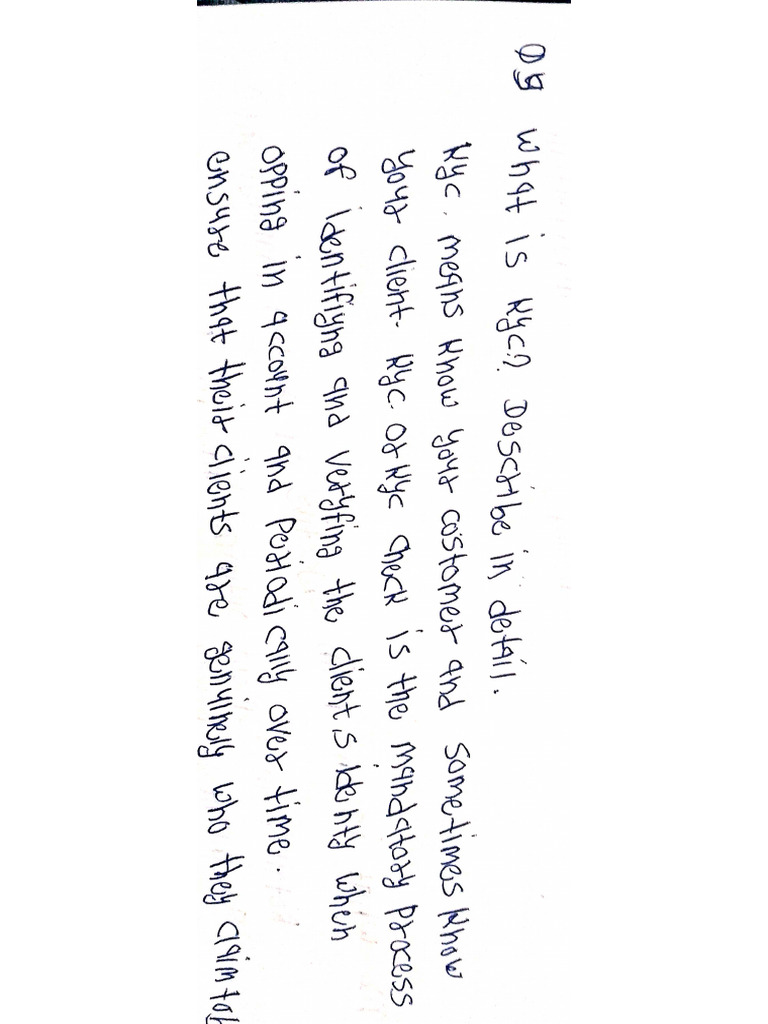 Q5 What is Kyc? Describe in detail.
Kyc. means Know your costomer and sometimes Know
your client. Kyc. or Kyc check is the mandatory Process
of identifiyng and veryfing the client s identy when
opping in account and Periodically over time.
ensure that their clients are genuinely who they claim to